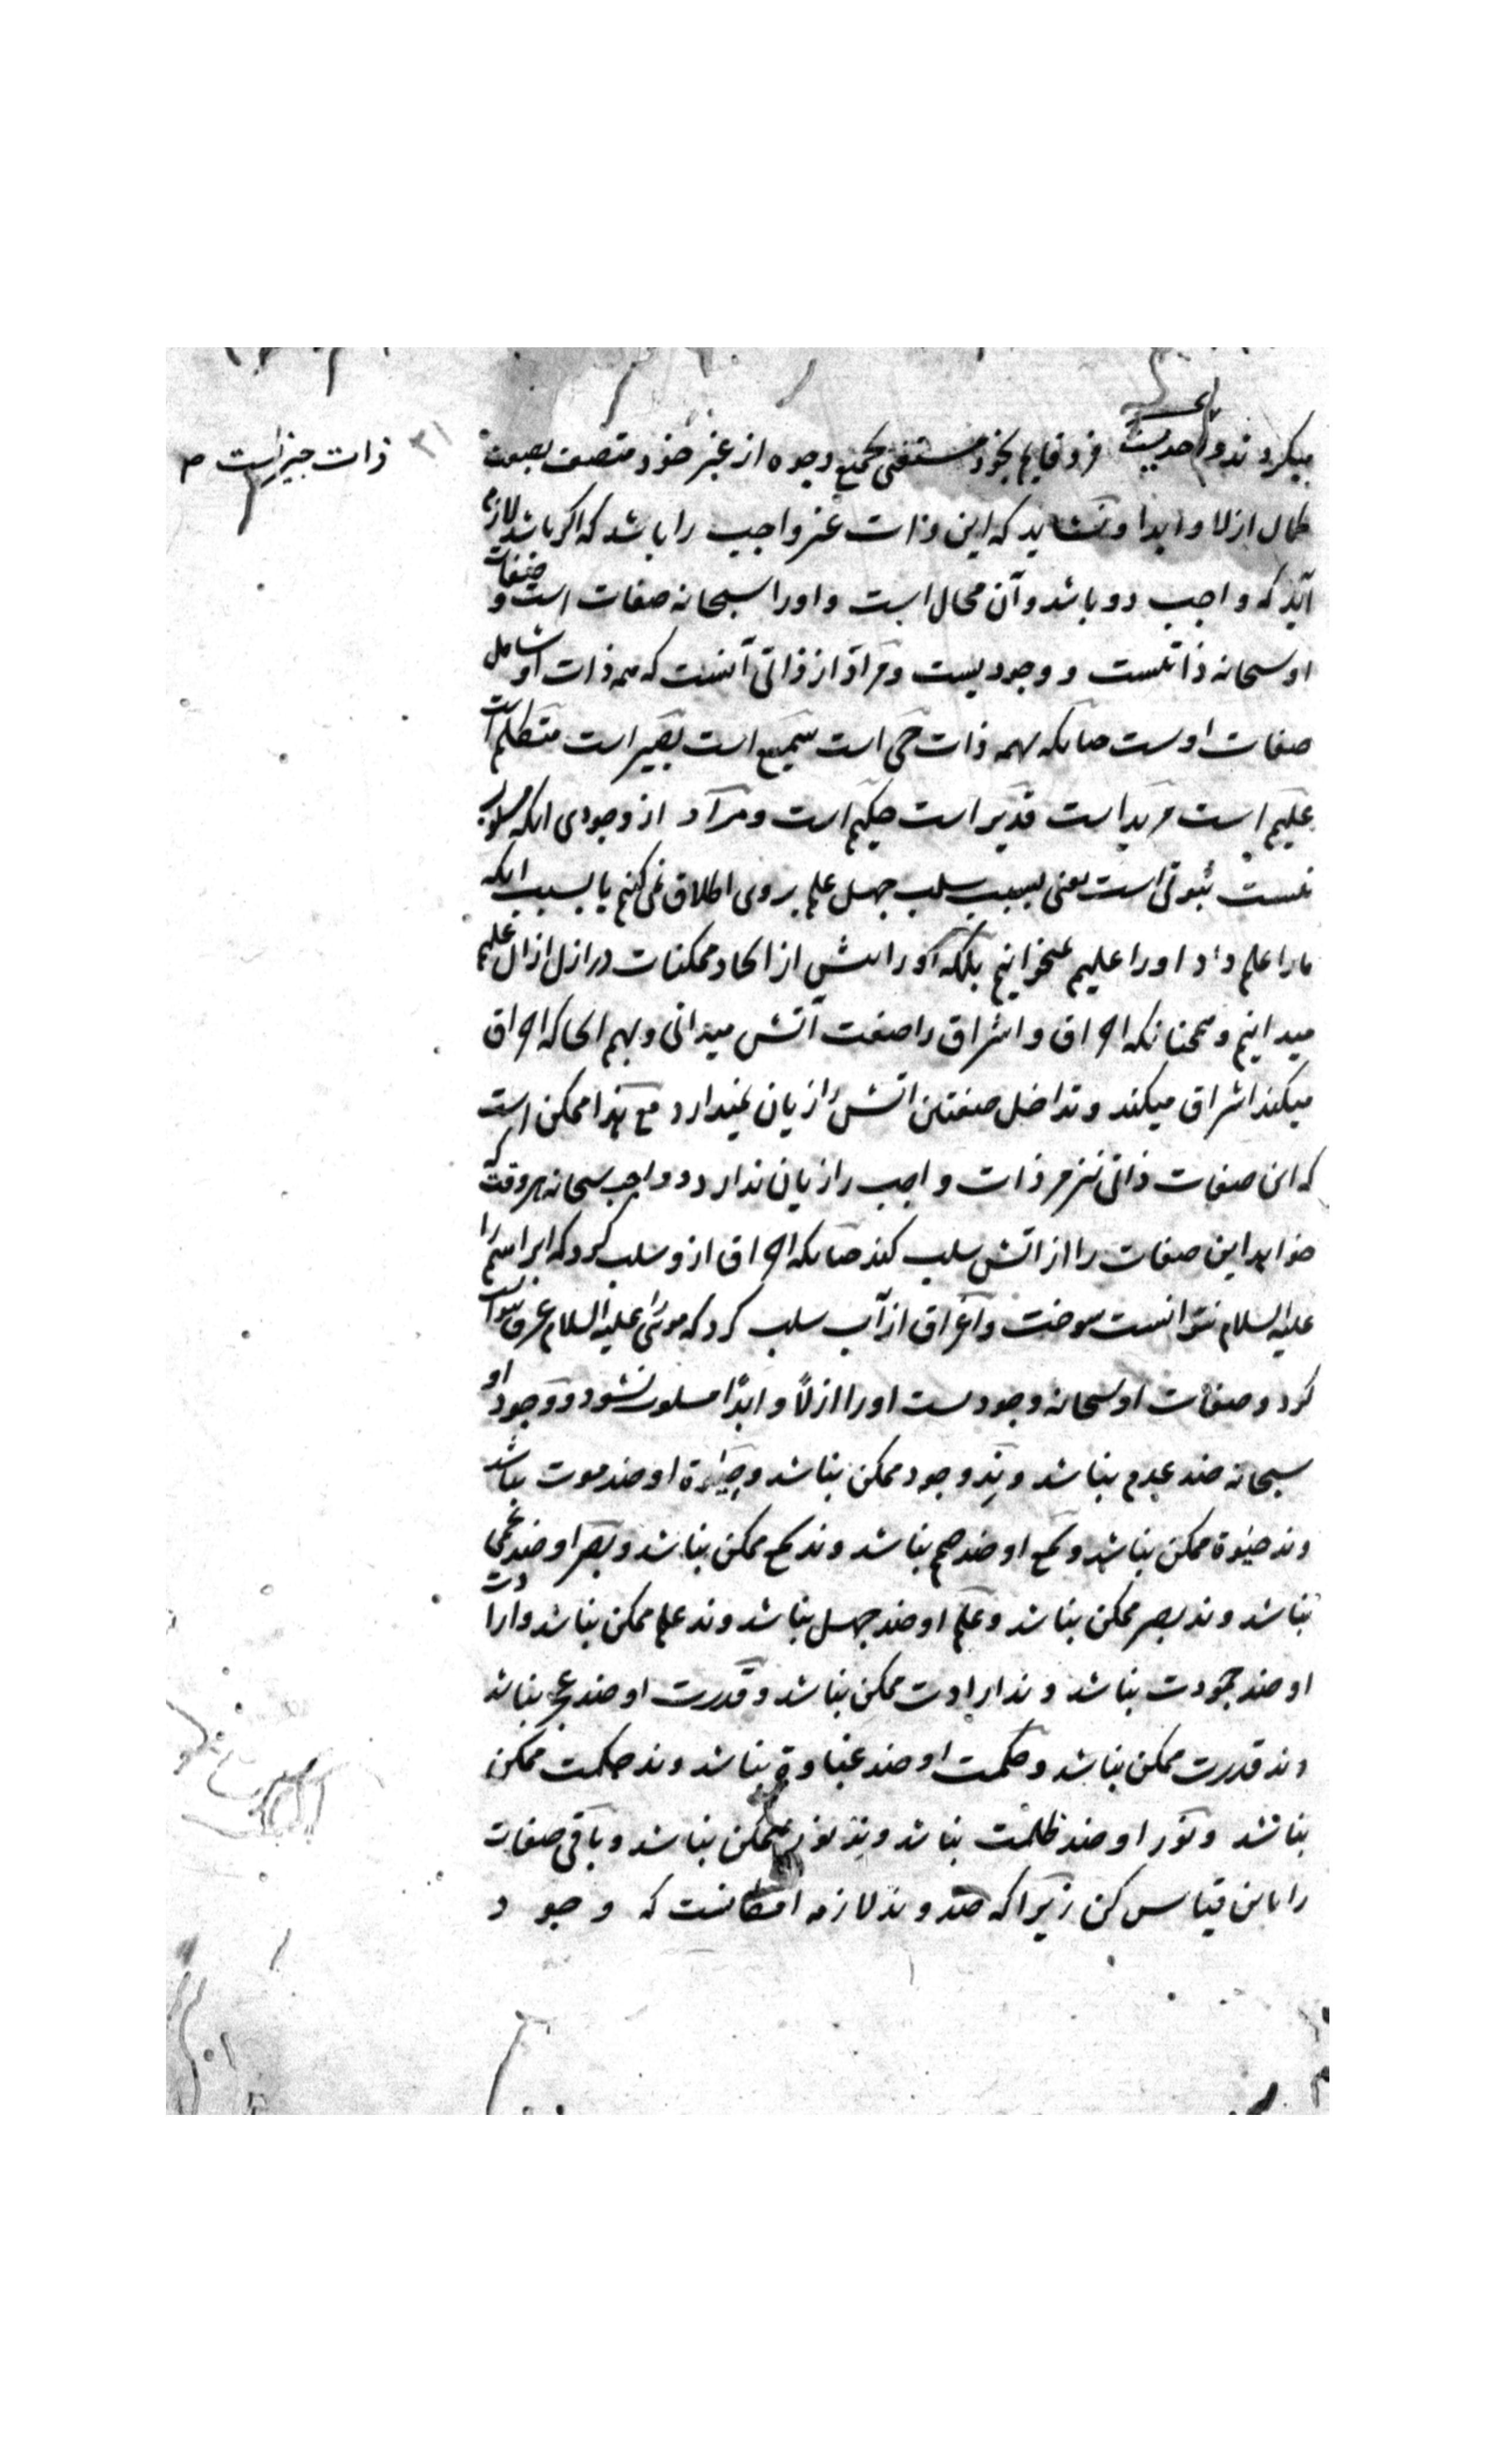 میکردند و احدیست فرد قایم بخود مستغنی بجمیع وجوه از غیر خود متصف بصفت
کمال ازلا و ابدا و نشاید که این ذات غیر واجب را باشد که اگر باشد لازم
آید که واجب دو باشد و آن محال است و او را سبحانه صفات است و صفات
او سبحانه ذاتیست و وجودیست و مراد از ذاتی آنست که همه ذات او شامل
صفات اوست چنانکه همه ذات حی است سمیع است بصیر است متکلم است
علیم است مرید است قدیر است حکیم است و مراد از وجودی انکه مسلوب
نیست ثبوتی است یعنی بسبب سلب جهل علم بروی اطلاق نمی کنیم یا بسبب انکه
ما را علم داد او را علیم نمیخوانیم بلکه او را پیش از ایجاد ممکنات در ازل ازال علیم
میدانیم و همچنانکه احراق و اشراق را صفت آتش میدانی و بهم انجا که احراق
میکند اشراق میکند و تداخل صفتین اتش را زیان نمیدارد مع هذا ممکن است
که این صفات ذاتی نیز مر ذات واجب را زیان ندارد و واجب سبحانه هر وقت که
خواهد این صفات را از اتش سلب کند چنانکه احراق ازو سلب کرد که ابراهیم را
علیه السلام نتوانست سوخت و اغراق از آب سلب کرد که موسی را علیه السلام غرق نتوانست
کرد و صفات او سبحانه وجودیست او را ازلاً و ابدًا مسلوب نشود و وجود او
سبحانه ضد عدم نباشد و ند وجود ممکن نباشد و حیوة او ضد موت نباشد
و ند حیوة ممکن نباشد و سمع او ضد صم نباشد و ند سمع ممکن نباشد و بصر او ضد عمی
نباشد و ند بصر ممکن نباشد و علم او ضد جهل نباشد و ند علم ممکن نباشد و ارادت
او ضد جمودت نباشد و ند ارادت ممکن نباشد و قدرت او ضد عجز نباشد
و ند قدرت ممکن نباشد و حکمت او ضد غباوة نباشد و ند حکمت ممکن
نباشد و نور او ضد ظلمت نباشد و ند نور ممکن نباشد و باقی صفات
را باین قیاس کن زیرا که ضد و ند لازمه امکانست که وجود
ذات چیزیست
۳۱